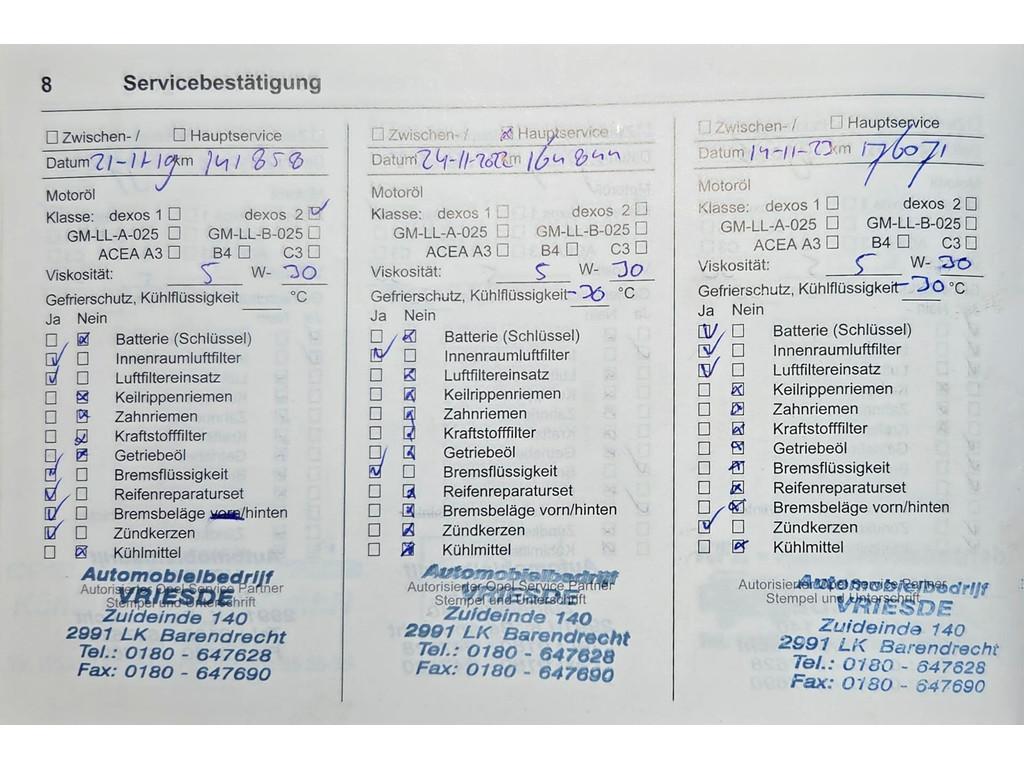 8 Servicebestätigung
☐ Zwischen- / ☐ Hauptservice
Datum 21-11-19 km 141858
Motoröl
Klasse: dexos 1 ☐ dexos 2 ☑
GM-LL-A-025 ☐ GM-LL-B-025 ☐
ACEA A3 ☐ B4 ☐ C3 ☐
Viskosität: 5 W- 30
Gefrierschutz, Kühlflüssigkeit °C
Ja Nein
☐ ☒ Batterie (Schlüssel)
☑ ☐ Innenraumluftfilter
☑ ☐ Luftfiltereinsatz
☐ ☒ Keilrippenriemen
☐ ☒ Zahnriemen
☐ ☒ Kraftstofffilter
☐ ☒ Getriebeöl
☑ ☐ Bremsflüssigkeit
☑ ☐ Reifenreparaturset
☑ ☐ Bremsbeläge vorn/hinten
☑ ☐ Zündkerzen
☐ ☒ Kühlmittel
Automobielbedrijf
Autorisierter Opel Service Partner
VRIESDE
Stempel und Unterschrift
Zuideinde 140
2991 LK Barendrecht
Tel.: 0180 - 647628
Fax: 0180 - 647690
☐ Zwischen- / ☒ Hauptservice
Datum 24-11-2022 km 164844
Motoröl
Klasse: dexos 1 ☐ dexos 2 ☐
GM-LL-A-025 ☐ GM-LL-B-025 ☐
ACEA A3 ☐ B4 ☐ C3 ☐
Viskosität: 5 W- 30
Gefrierschutz, Kühlflüssigkeit -36 °C
Ja Nein
☐ ☒ Batterie (Schlüssel)
☑ ☐ Innenraumluftfilter
☐ ☒ Luftfiltereinsatz
☐ ☒ Keilrippenriemen
☐ ☒ Zahnriemen
☐ ☒ Kraftstofffilter
☐ ☒ Getriebeöl
☑ ☐ Bremsflüssigkeit
☐ ☒ Reifenreparaturset
☐ ☒ Bremsbeläge vorn/hinten
☐ ☒ Zündkerzen
☐ ☒ Kühlmittel
Automobielbedrijf
Autorisierter Opel Service Partner
VRIESDE
Stempel und Unterschrift
Zuideinde 140
2991 LK Barendrecht
Tel.: 0180 - 647628
Fax: 0180 - 647690
☐ Zwischen- / ☐ Hauptservice
Datum 14-11-23 km 176071
Motoröl
Klasse: dexos 1 ☐ dexos 2 ☐
GM-LL-A-025 ☐ GM-LL-B-025 ☐
ACEA A3 ☐ B4 ☐ C3 ☐
Viskosität: 5 W- 30
Gefrierschutz, Kühlflüssigkeit -30 °C
Ja Nein
☑ ☐ Batterie (Schlüssel)
☑ ☐ Innenraumluftfilter
☑ ☐ Luftfiltereinsatz
☐ ☒ Keilrippenriemen
☐ ☒ Zahnriemen
☐ ☒ Kraftstofffilter
☐ ☒ Getriebeöl
☐ ☒ Bremsflüssigkeit
☐ ☒ Reifenreparaturset
☐ ☒ Bremsbeläge vorn/hinten
☑ ☐ Zündkerzen
☐ ☒ Kühlmittel
Automobielbedrijf
Autorisierter Opel Service Partner
VRIESDE
Stempel und Unterschrift
Zuideinde 140
2991 LK Barendrecht
Tel.: 0180 - 647628
Fax: 0180 - 647690